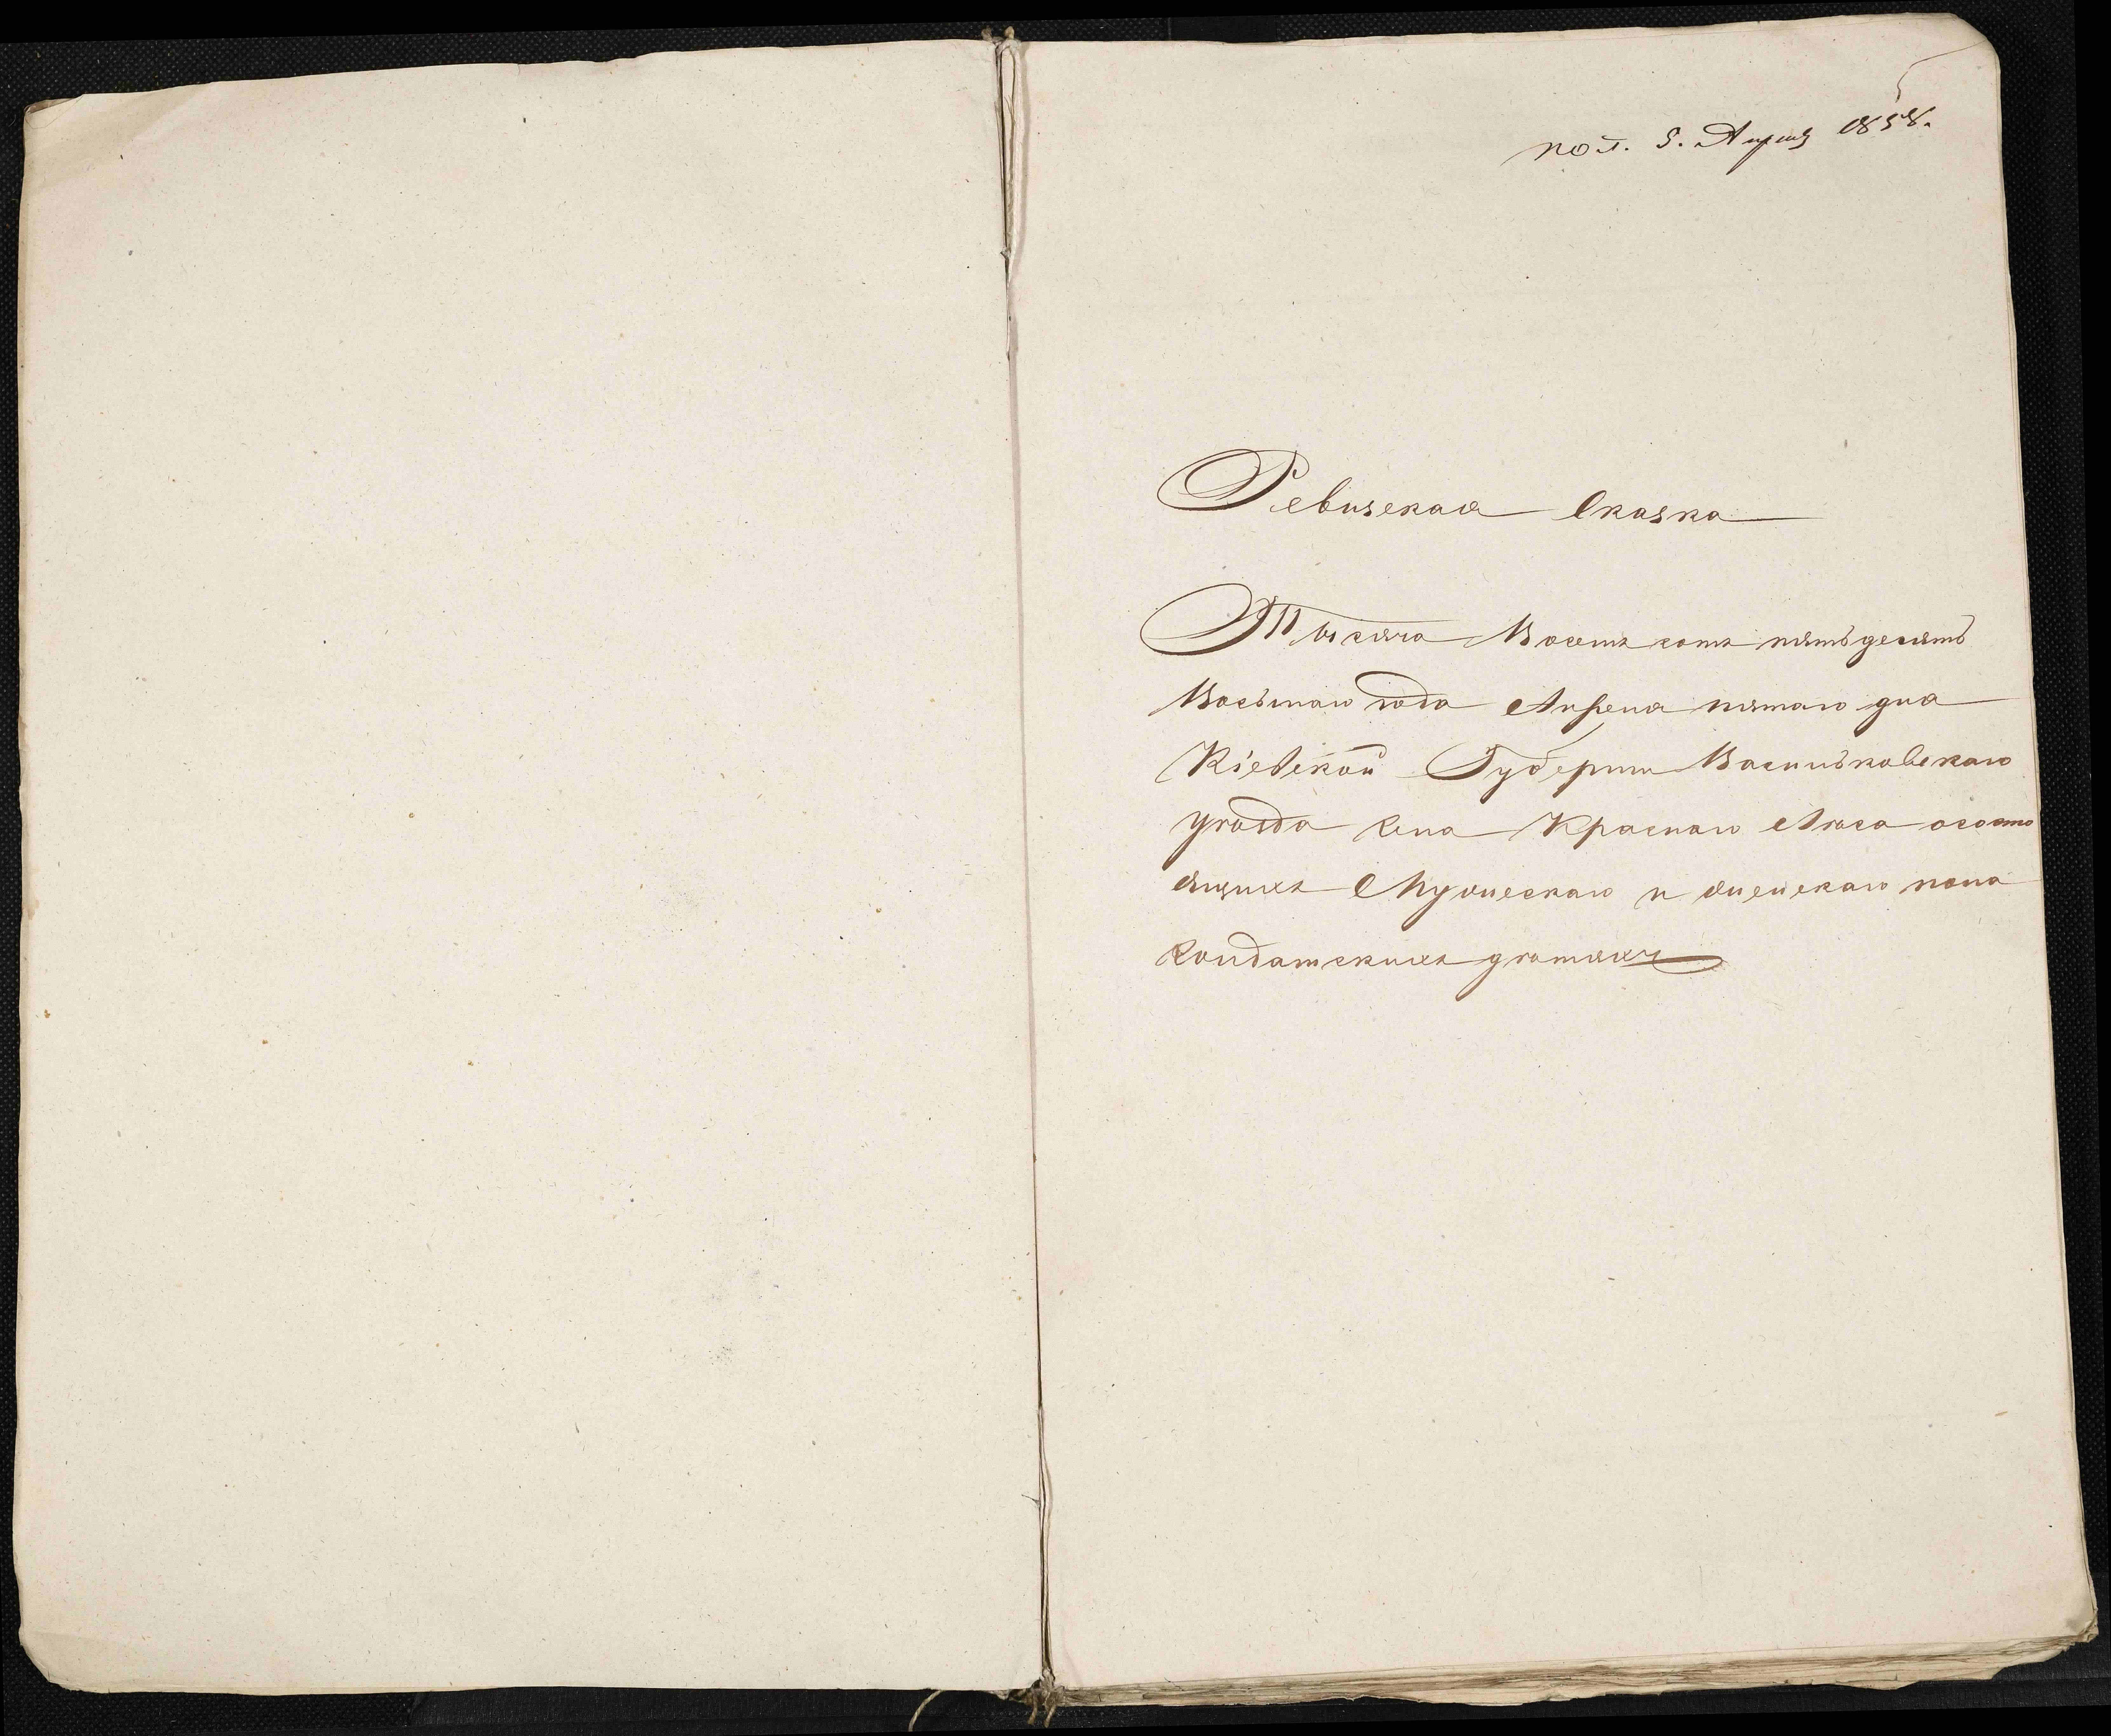 пол. 5. Апреля 1858.
Ревизская Сказка
Тысяча Восемъ сотъ пятьдесятъ
Восьмаго года Апреля пятаго дня
Кіевской Губерніи Васильковскаго
уѣзда села Краснаго Лѣса ососто
ящихъ Мужескаго и женскаго пола
Солдатскихъ дѣтяхъ